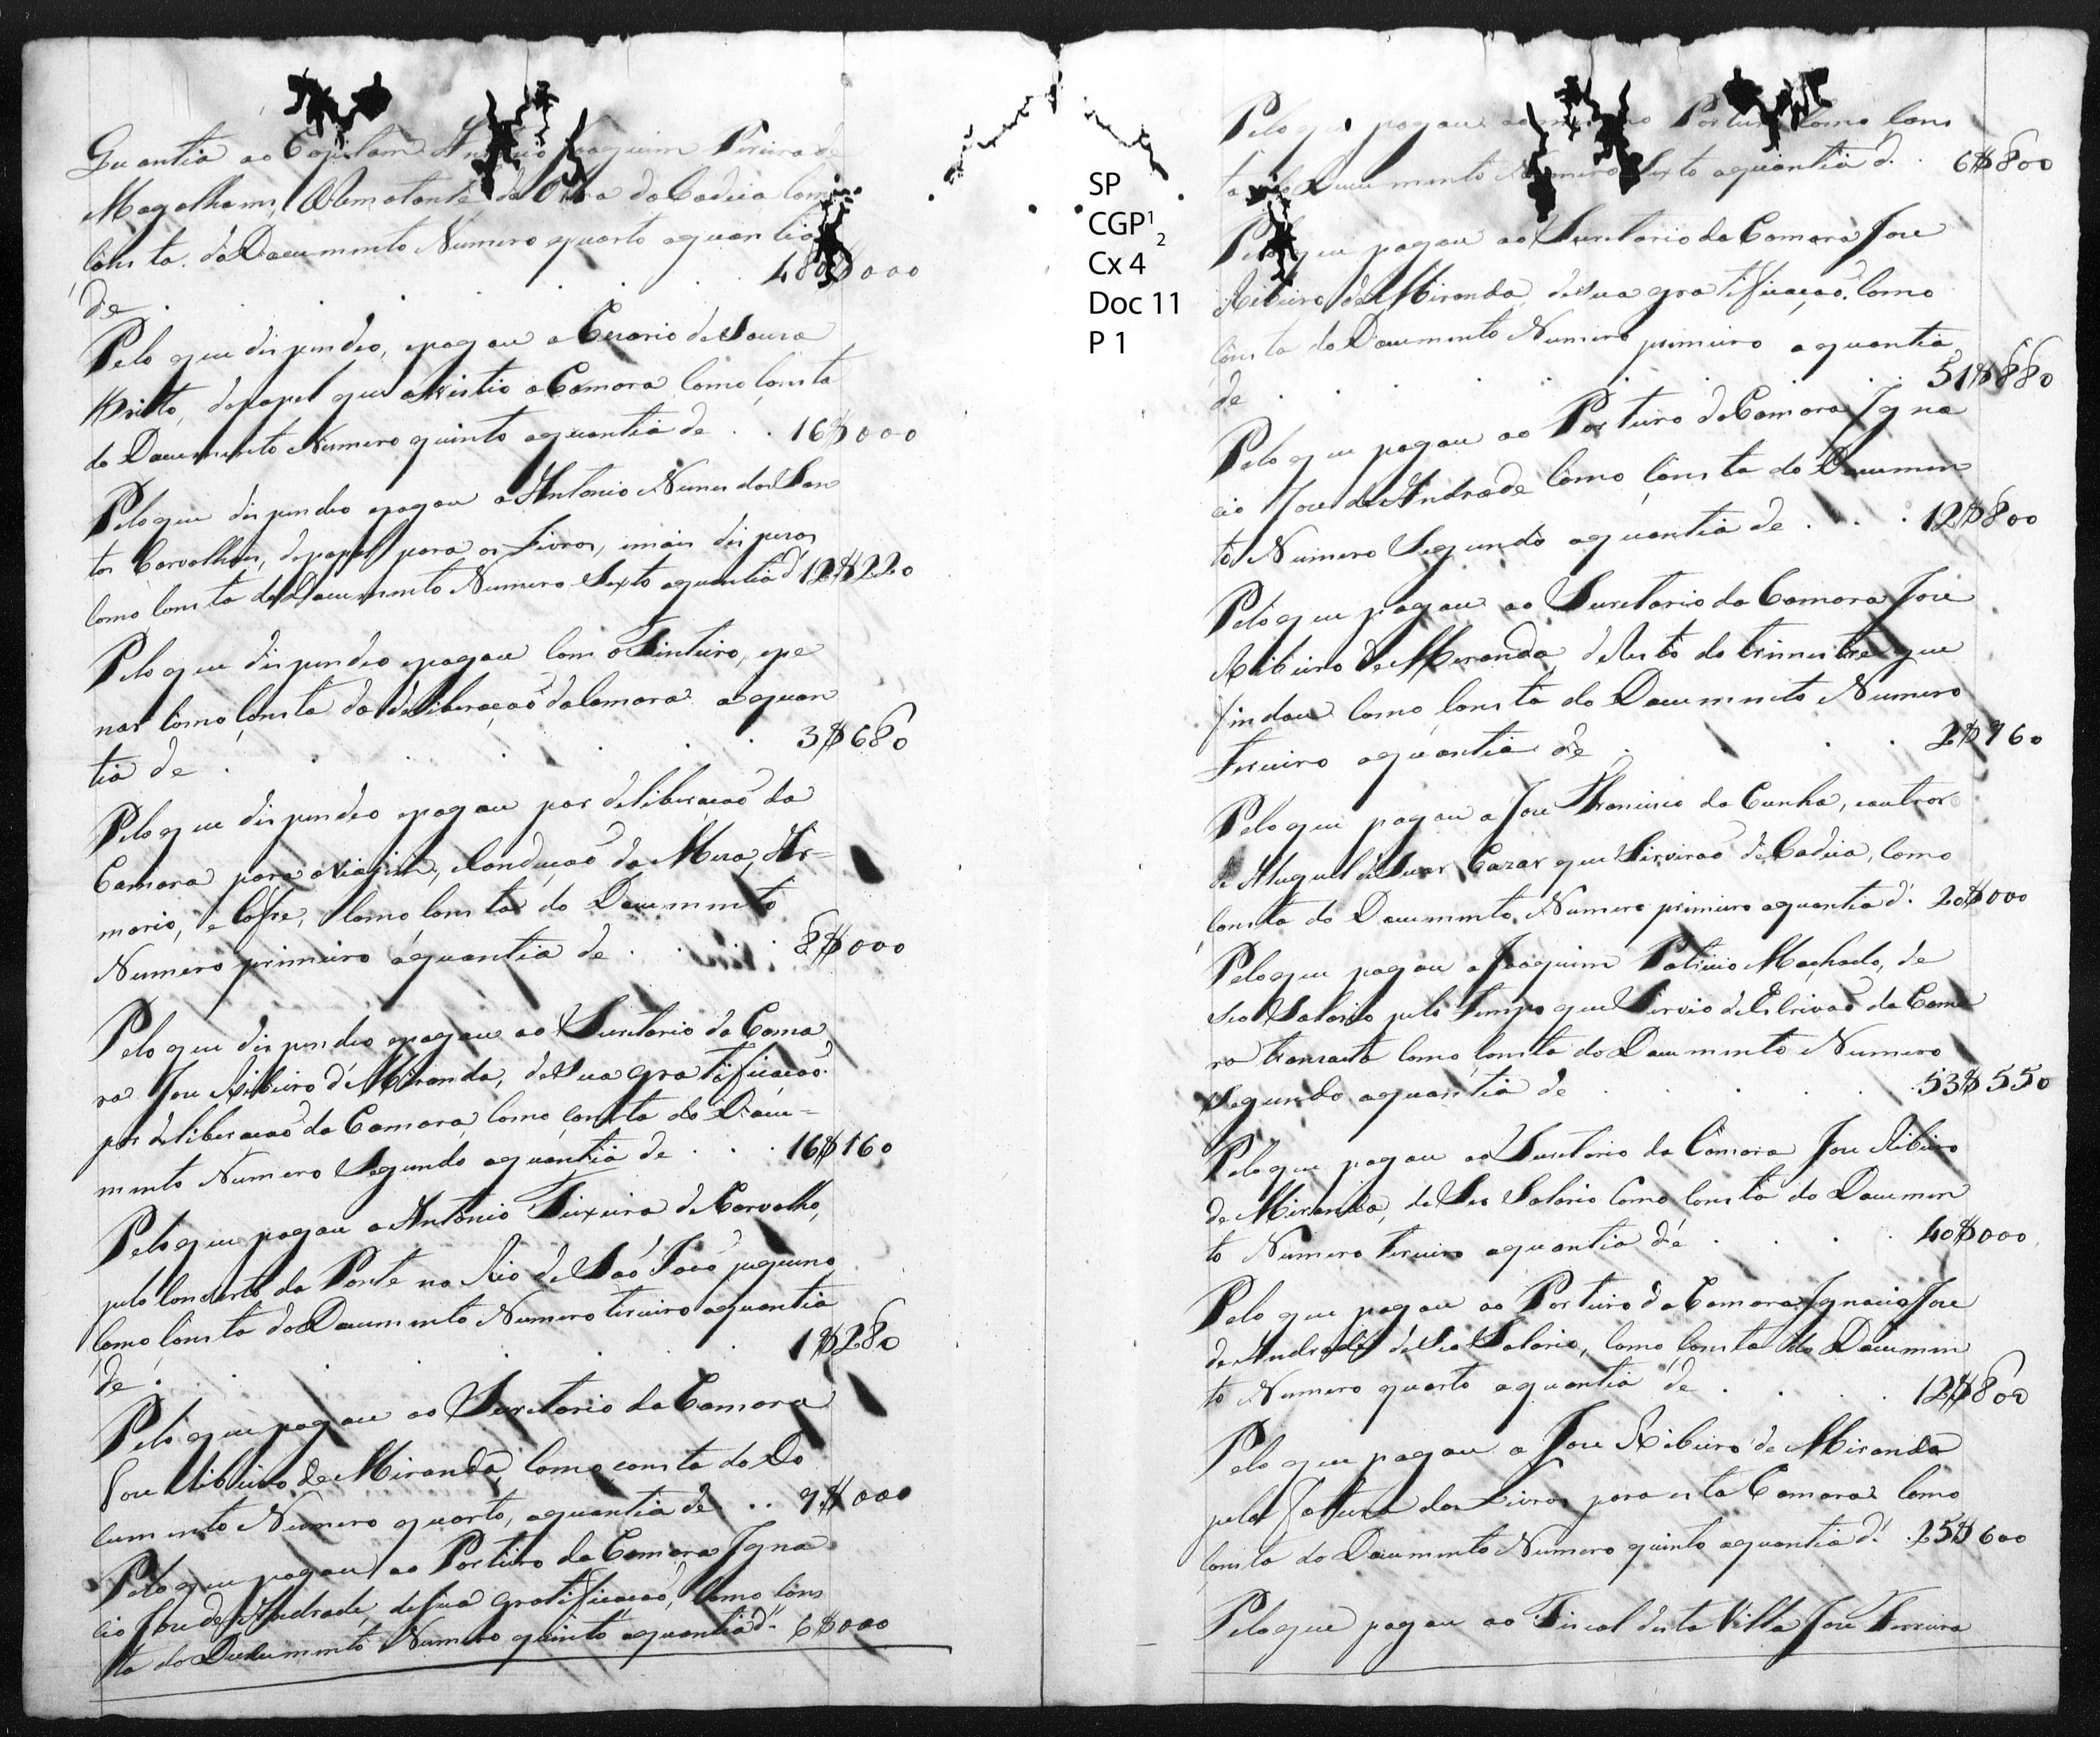 Quantia ao Capitam Antonio Joaquim Pereira de
Magalhaens, Rematante da Obra da Cadeia como
consta do Documento Numero quarto aquantia
de . . . . . . . 480$000
Pelo que dispendeo, epagou a Cezario de Souza
Britto, de papel que asestio a Camara como consta
do Documento Numero quinto aquantia de . . 16$000
Pelo que dispendeo epagou a Antonio Nunes dos San
tos Carvalhos, de papel para os Livros, e mais despezas
como consta do Documento Numero Sexto aquantia d' 12$220
Pelo que dispendeo epagou com o Tinteiro, epe
nas como consta da deliberaçaõ da Camara aquan
tia de . . . . . . 3$680
Pelo que dispendeo epagou por deliberaçaõ da
Camara para a viajem, e conduçaõ da Meza, Ar=
mario, e Cofre, como consta do Documento
Numero primeiro aquantia de . . . . 8$000
Pelo que dispendeo epagou ao Secretario da Cama
ra Joze Ribeiro d'Miranda, desua gratificaçaõ
por deliberaçaõ da Camara como consta do Docu=
mento Numero Segundo aquantia de . . . 16$160
Pelo que pagou a Antonio Teixeira de Carvalho,
pelo concerto da Ponte no Rio de Saõ Joaõ pequeno
como consta do Documento Numero terceiro aquantia
de . . . . . . 1$280
Pelo que pagou ao Secretario da Camara
Joze Ribeiro de Miranda como consta do Do
cumento Numero quarto, aquantia de . . 9$000
Pelo que pagou ao Porteiro da Camara Igna
cio Joze de Andrade, desua gratificacaõ, como cons
ta do Documento Numero quinto aquantia d' 6$000
SP
CGP¹₂
Cx 4
Doc 11
P 1
Pelo que pagou ao mesmo Porteiro como cons
ta do Documento Numero Sexto aquantia d' . 6$800
Pelo que pagou ao Secretario da Camara Joze
Ribeiro de Miranda, desua gratificaçaõ como
consta do Documento Numero primeiro aquantia
de . . . . . . . 51$880
Pelo que pagou ao Porteiro da Camara Igna
cio Joze de Andrade como consta do Documen
to Numero Segundo aquantia de . . . 12$800
Pelo que pagou ao Secretario da Camara Joze
Ribeiro de Meranda, deResto do trimestre que
findou como consta do Documento Numero
Terceiro aquantia de . . . 2$960
Pelo que pagou a Joze Francisco da Cunha, e outros
de Aluguel desuas Cazas que Servirao de Cadeia, como
consta do Documento Numero primeiro aquantia d' 20$000
Pelo que pagou a Joaquim Patricio Machado, de
seo Salario pelo Tempo que Servio de Escrivaõ da Cama
ra tranzacta como consta do Documento Numero
Segundo aquantia de . . . . 53$550
Pelo que pagou ao Secretario da Camara Joze Ribeiro
de Miranda, de Seo Salario como consta do Documen
to Numero Terceiro aquantia de . . . . 40$000
Pelo que pagou ao Porteiro da Camara Ignacio Joze
de Andrade, de Seo Salario, como consta do Documen
to Numero quarto aquantia de . . . 12$800
Pelo que pagou a Joze Ribeiro de Miranda
pela fatura dos Livros para esta Camara como
consta do Documento Numero quinto aquantia d' 25$600
Pelo que pagou ao Fiscal desta Villa Joze Ferreira